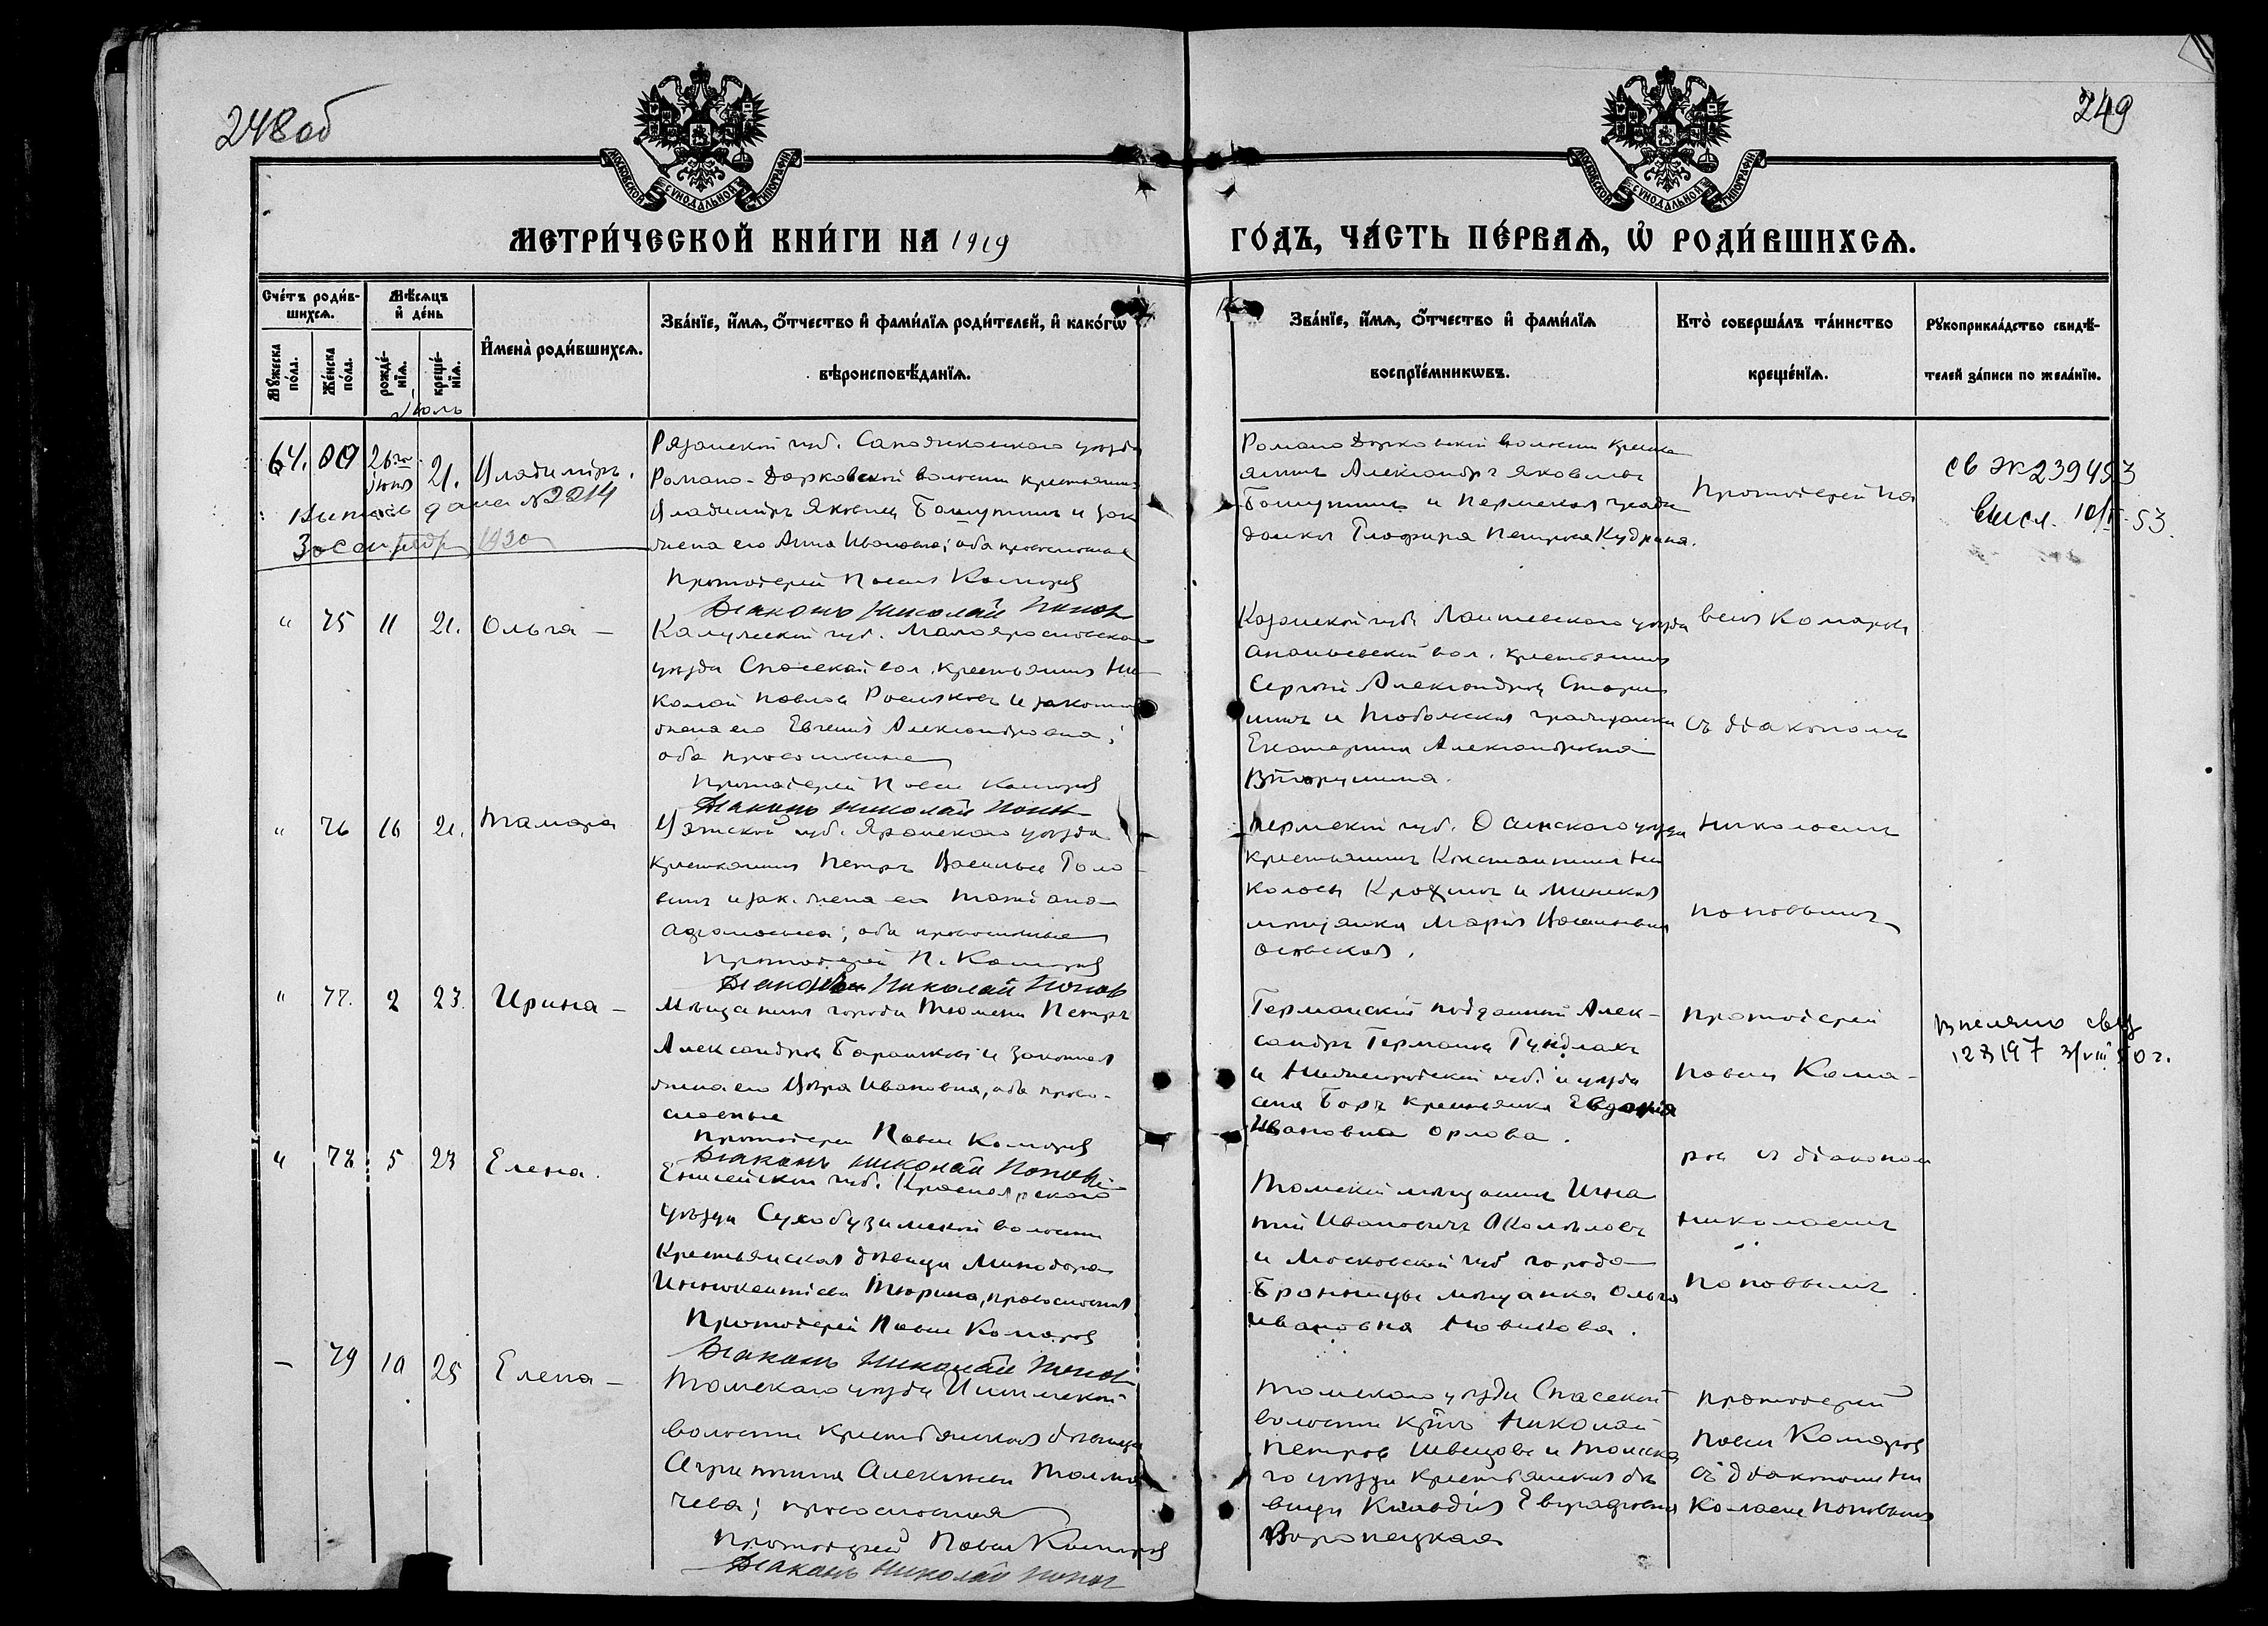 248об
249
МОСКОВСКОЙ СУНОДАЛЬНОЙ ТИПОГРАФІИ
МОСКОВСКОЙ СУНОДАЛЬНОЙ ТИПОГРАФІИ
МЕТРИ́ЧЕСКОЙ КНИ́ГИ НА 1919
ГО́ДЪ, ЧА́СТЬ ПЕ́РВАѦ, Ѡ҆ РОДИ́ВШИХСѦ.
Сче́тъ роди́в-
шихсѧ.
Мѣ́сѧцъ
и҆ де́нь
Мꙋ́жеска
по́ла.
Же́нска
по́ла.
рожде́-
нїѧ.
креще́-
нїѧ.
И҆мена̀ роди́вшихсѧ.
Зва́нїе, и҆́мѧ, ѻ҆́тчество и҆ фами́лїѧ роди́телей, и҆ како́гѡ
вѣроисповѣ́данїѧ.
Зва́нїе, и҆́мѧ, ѻ҆́тчество и҆ фами́лїѧ
воспрїе́мникѡвъ.
Кто̀ соверша́лъ та́инство
креще́нїѧ.
Рꙋкоприкла́дство свидѣ́-
телей за́писи по жела́нїю.
Іюль
64. 26го Іюня 21. Владиміръ.
дана № 2214
30 сентября 1920
Рязанской губ. Сапожковского уѣзда
Романо-Дарковской волости крестьянинъ
Владиміръ Яковлевъ и зак
жена его Анна Ивановна; оба православные
Протоіерей Павелъ Комаровъ
Діаконъ Николай Попов
Романо Дарковской волости кресть
янинъ Александръ Яковлевъ
и Пермская граж
данка Глафира Петровна Кудрина.
Протоіерей Па
св ЖК 239453
10/ 53.
" 75 11 21. Ольга —
Калужской губ. Малоярославскаго
уѣзда Спасской вол. крестьянинъ Ни
колай Павловъ и законная
жена его Евгенія Александровна;
оба православные
Протоіерей Павелъ Комаровъ
Діаконъ Николай Попов
Казанской губ. Лаишевского уѣзда
вол. крестьянинъ
Сергѣй Александровъ
и Тобольская гражданка
Екатерина Александровна
Вторушина.
велъ Комаровъ
съ діакономъ
" 76 16 21. Тамара
Вятской губ. Яранского уѣзда
крестьянинъ Петръ Васильевъ Голо
винъ и зак. жена его Татіана
; оба православные
Протоіерей П. Комаровъ
Діаконъ Николай Попов
Пермской губ. Осинского уѣзда
крестьянинъ Константинъ Ни
колаевъ и Минская
мѣщанка Марія
Николаемъ
Поповымъ
" 77. 2 23. Ирина —
Мѣщанинъ города Тюмени Петръ
Александровъ Барашковъ и законная
жена его Вѣра Ивановна, оба право-
славные
Протоіерей Павелъ Комаровъ
Діаконъ Николай Попов
Германскій подданный Алек-
сандръ Германовъ Гундлахъ
и Нижегородской губ. и уѣзда
села Боръ крестьянка Евдокія
Ивановна Орлова.
Протоіерей
Павелъ Кома-
ровъ съ діакономъ
123197 3/VIII 50 г.
" 78 5 23 Елена.
Енисейской губ. Красноярского
уѣзда Сухобузимской волости
Крестьянская дѣвица Минодора
Иннокентіева Тюрина, православная
Протоіерей Павелъ Комаровъ
Діаконъ Николай Попов
Томскій мѣщанинъ Игна
тій Ивановичъ
и Московской губ города
Бронницы мѣщанка Ольга
Ивановна Новикова.
Николаемъ
Поповымъ
— 79 10 25 Елена —
Томскаго уѣзда Ишимской
волости крестьянская дѣвица
Агриппина Алексѣева Толма
чева; православная
Протоіерей Павелъ Комаровъ
Діаконъ Николай Попов
Томскаго уѣзда Спасской
волости Николай
Петровъ Швецовъ и Томска
го уѣзда крестьянская дѣ
вица Клавдія Евграфовна
Воронецкая
Протоіерей
Павелъ Комаровъ
съ діакономъ Ни
колаемъ Поповымъ